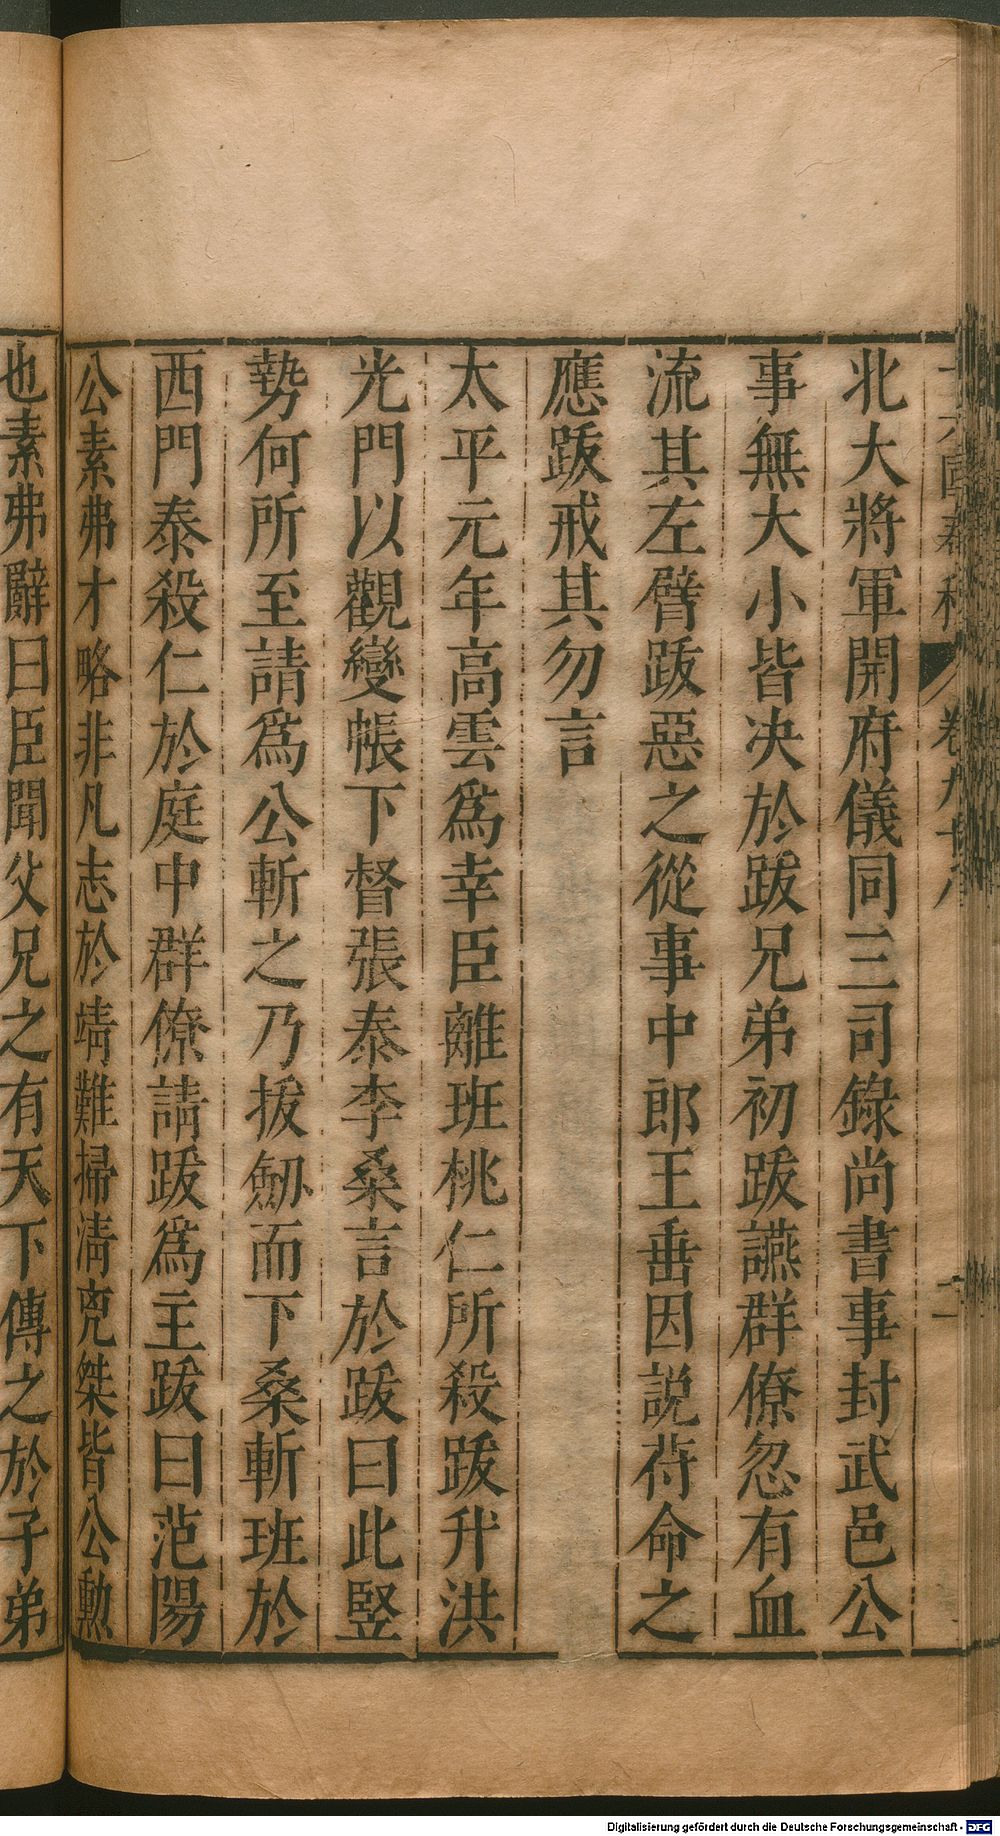 十六國春秋 卷九十八 二
北大將軍開府儀同三司錄尚書事封武邑公
事無大小皆决於跋兄弟初跋讌群僚忽有血
流其左臂跋惡之從事中郎王垂因説苻命之
應跋戒其勿言
太平元年高雲爲幸臣離班桃仁所殺跋升洪
光門以觀變帳下督張泰李桑言於跋曰此竪
勢何所至請爲公斬之乃拔劒而下桑斬班於
西門泰殺仁於庭中群僚請跋爲主跋曰范陽
公素弗才略非凡志於靖難掃清兇桀皆公勲
也素弗辭曰臣聞父兄之有天下傳之於子弟
Digitalisierung gefördert durch die Deutsche Forschungsgemeinschaft - DFG